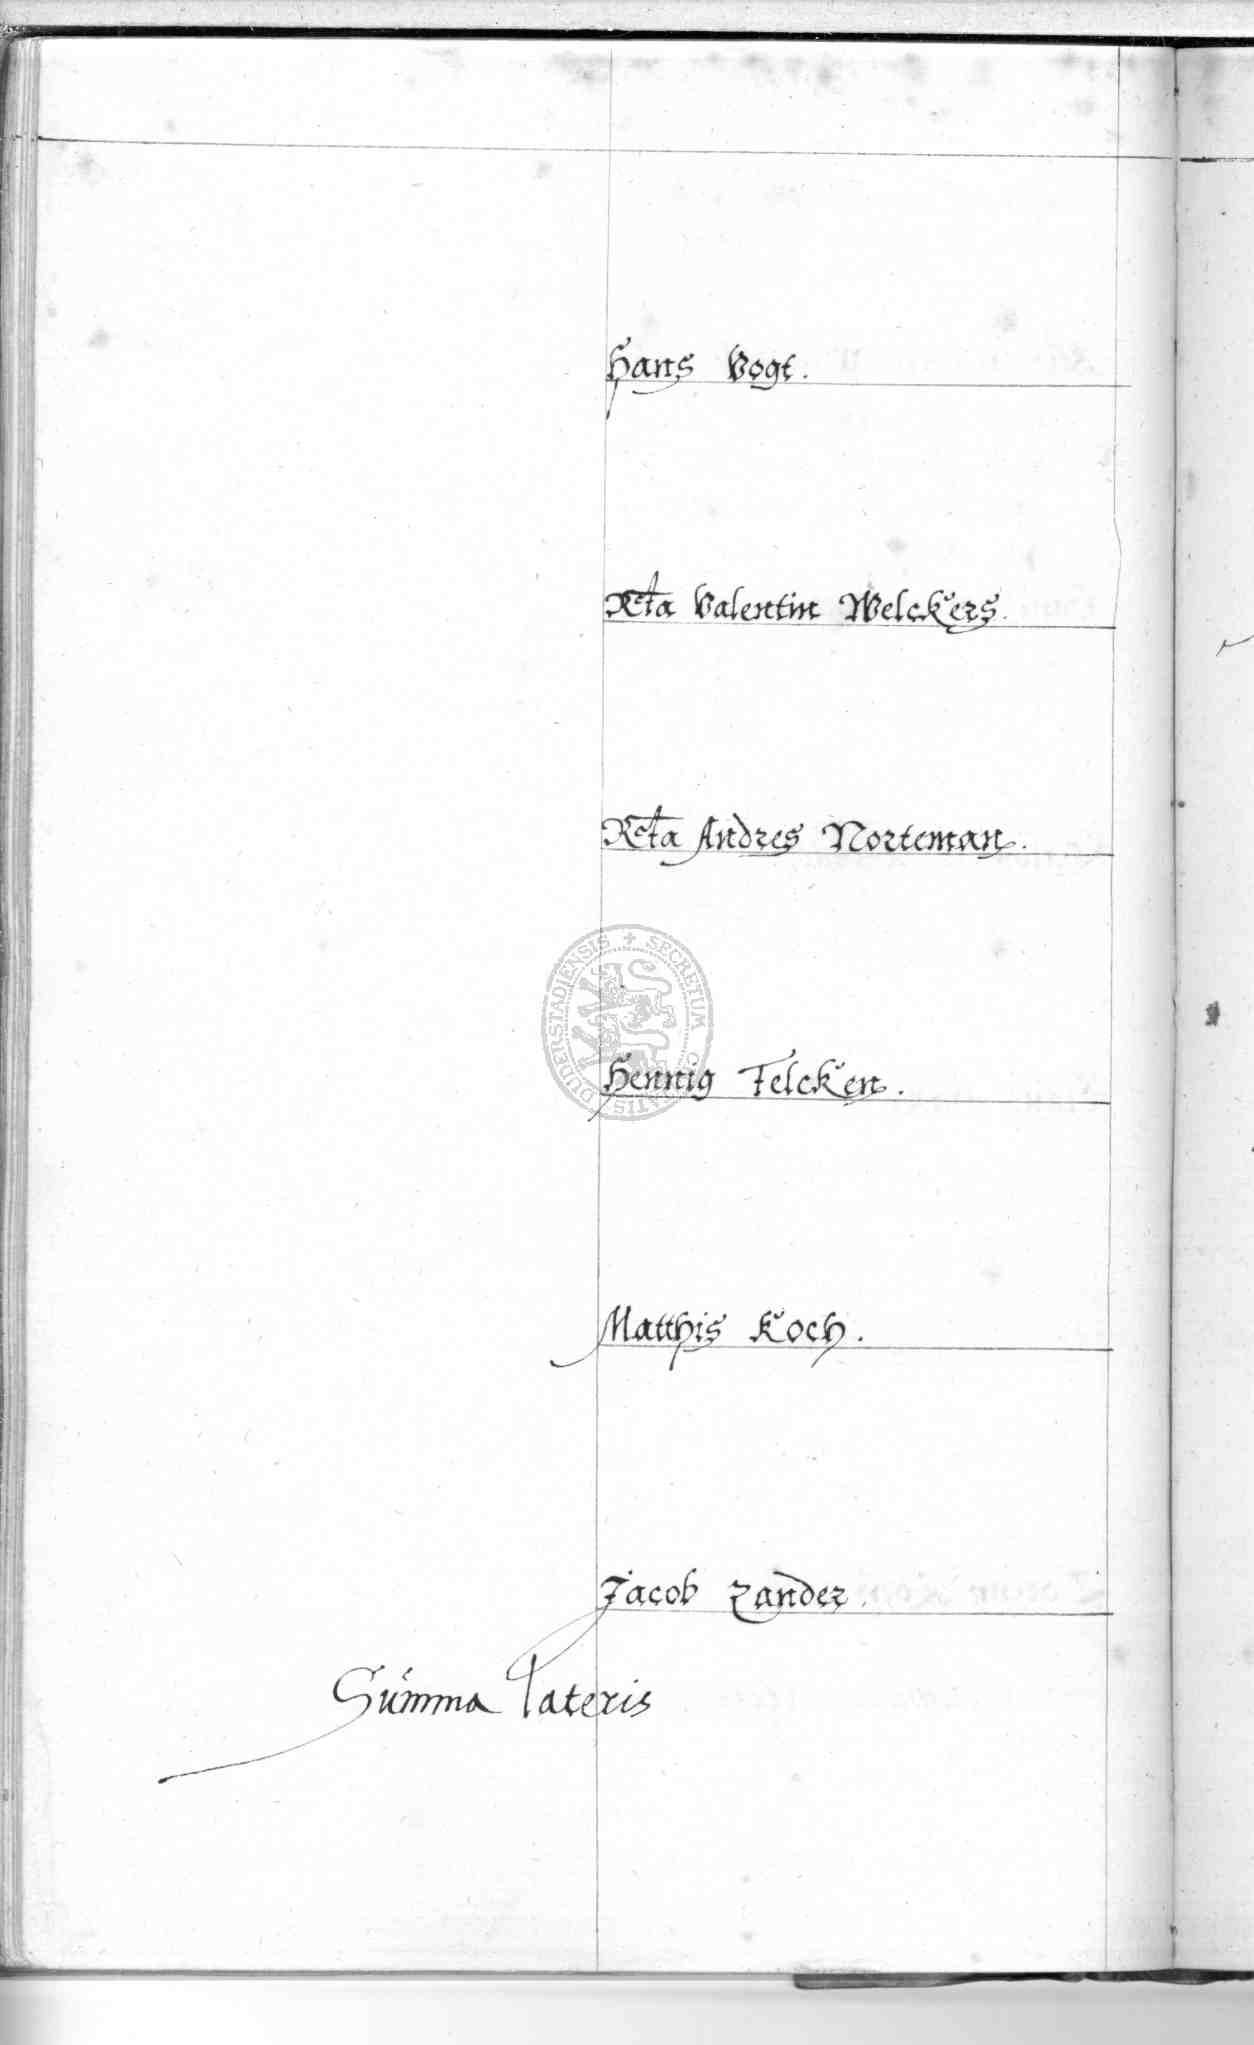 Hans Vogt.
Rcta Valentin Welckers.
Rcta Andres Norteman.
Hennig Felcken.
Matthis Koch.
Jacob Zander.
Summa Lateris
SECRETUM CIVITATIS DUDERSTADIENSIS